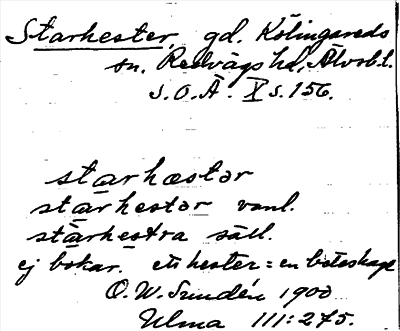 Starhester, gd. Kölingareds
sn. Redvägs hd, Älvsb.l.
S.O.Ä. X s. 156.
starhæstər
starhestər vanl.
stàrhestra säll.
ej bokar. ett hester = en boteskage
O.W. Sundén 1900
Ulma 111:275.